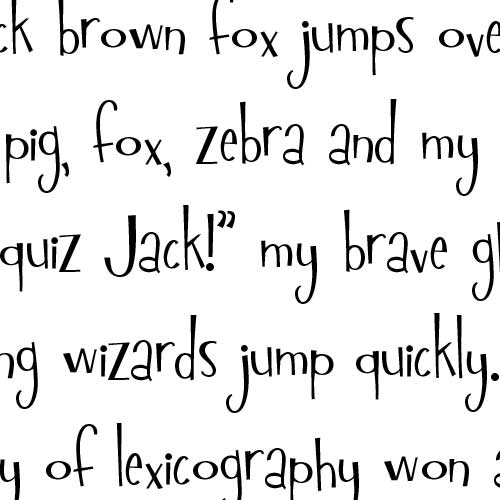 ck brown fox jumps ove
pig, fox, zebra and my
quiz Jack!” my brave gh
ng wizards jump quickly.
y of lexicography won a